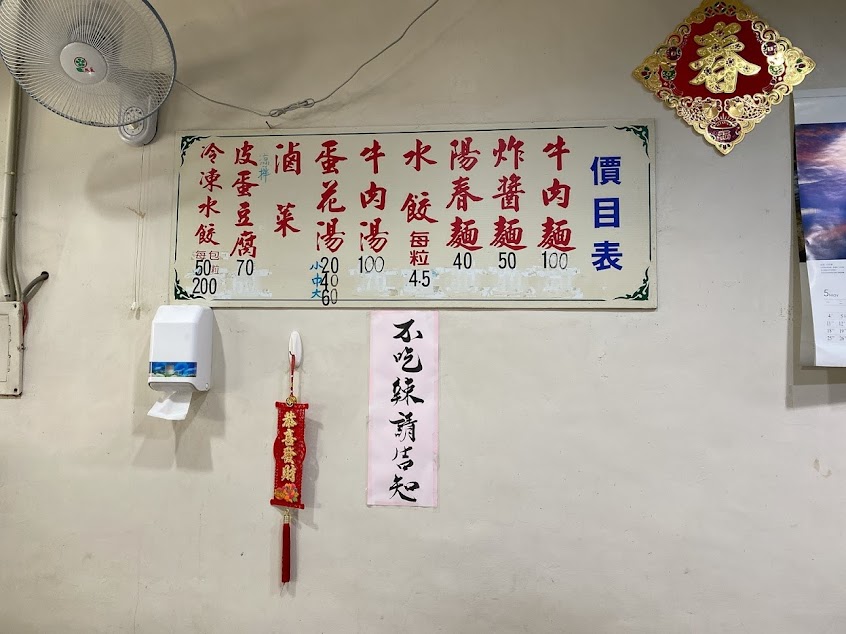 價目表
牛肉麵 100
炸醬麵 50
陽春麵 40
水餃 每粒 4.5
牛肉湯 100
蛋花湯 小20 中40 大60
滷菜
涼拌皮蛋豆腐 70
冷凍水餃 每包50粒 200
春
不吃辣請告知
恭喜發財
5